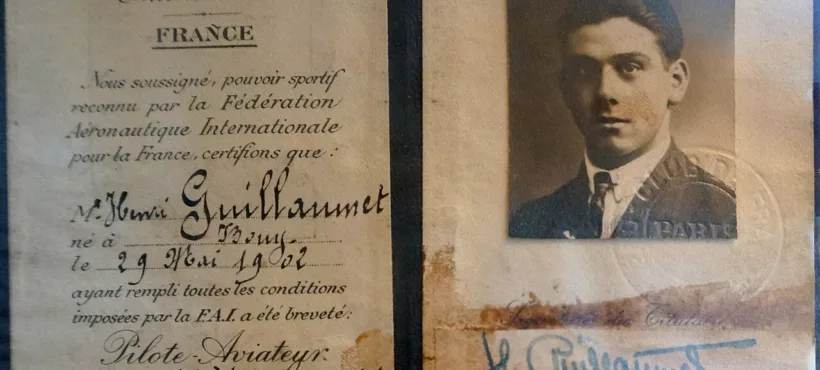 FRANCE
Nous soussigné, pouvoir sportif
reconnu par la Fédération
Aéronautique Internationale
pour la France, certifions que :
Mr. Henri Guillaumet
né à Bouy
le 29 Mai 1902
ayant rempli toutes les conditions
imposées par la F.A.I. a été breveté :
Pilote-Aviateur
PARIS
du Titulaire
H. Guillaumet